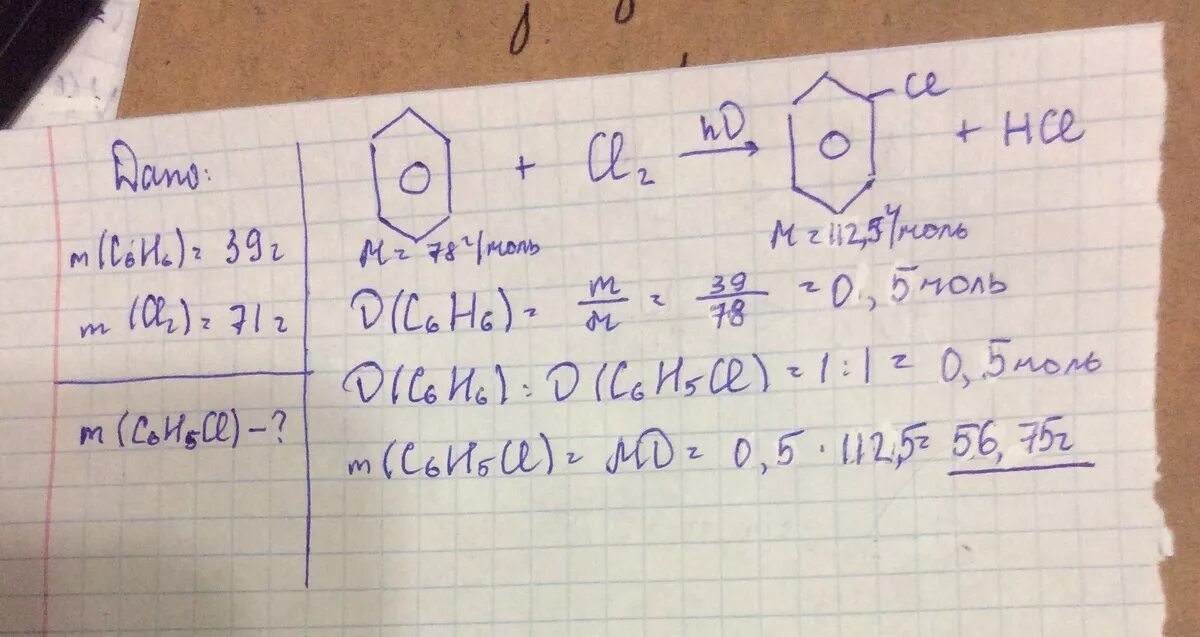 Дано:
m(C₆H₆) = 39г
m(Cl₂) = 71г
m(C₆H₅Cl) – ?
+ Cl₂ hν → Cl + HCl
M = 78 г/моль
M = 112,5 г/моль
ν(C₆H₆) = m/M = 39/78 = 0,5 моль
ν(C₆H₆) : ν(C₆H₅Cl) = 1:1 = 0,5 моль
m(C₆H₅Cl) = Mν = 0,5 · 112,5 = 56,75г